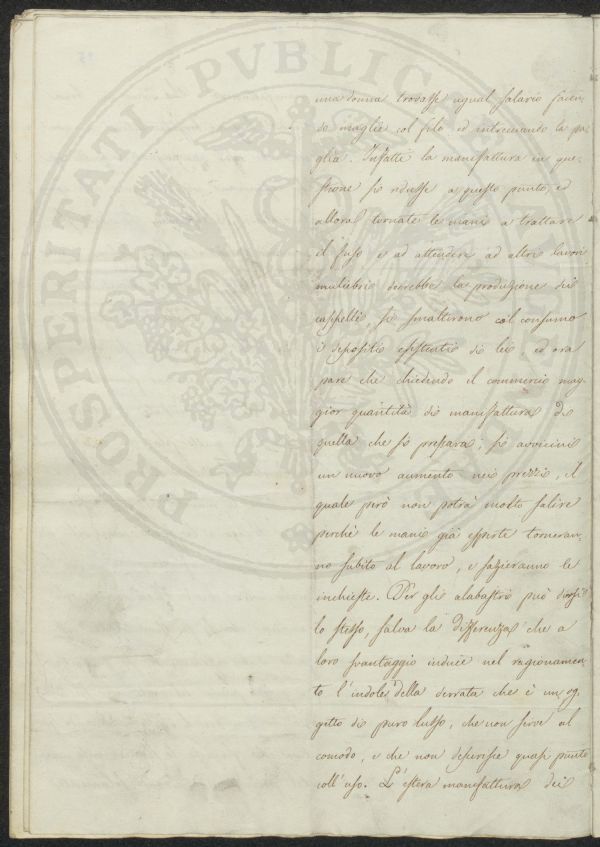 PROSPERITATI PVBLICAE
una donna trovasse ugual salario facen-
do maglie col filo, ed intrecciando la pa-
glia. Infatti la manifattura in que-
stione si ridusse a questo punto, ed
allora tornate le mani a trattare
il fuso e ad attendere ad altri lavori
muliebri decrebbe la produzione dei
cappelli, si smaltirono col consumo
i depositi esistenti di lei, ed ora
pare che chiedendo il commercio mag-
gior quantità di manifattura di
quella che si prepara, si avvicini
un nuovo aumento nei prezzi, il
quale però non potrà molto salire
perchè le mani già esperte torneran-
no subito al lavoro, e sazieranno le
inchieste. Per gli alabastri può dirsi
lo stesso, salva la differenza che a
loro svantaggio induce nel ragionamen-
to l'indole della derrata che è un og-
getto di puro lusso, che non serve al
comodo, e che non deperisce quasi punto
coll'uso. L'estera manifattura dei